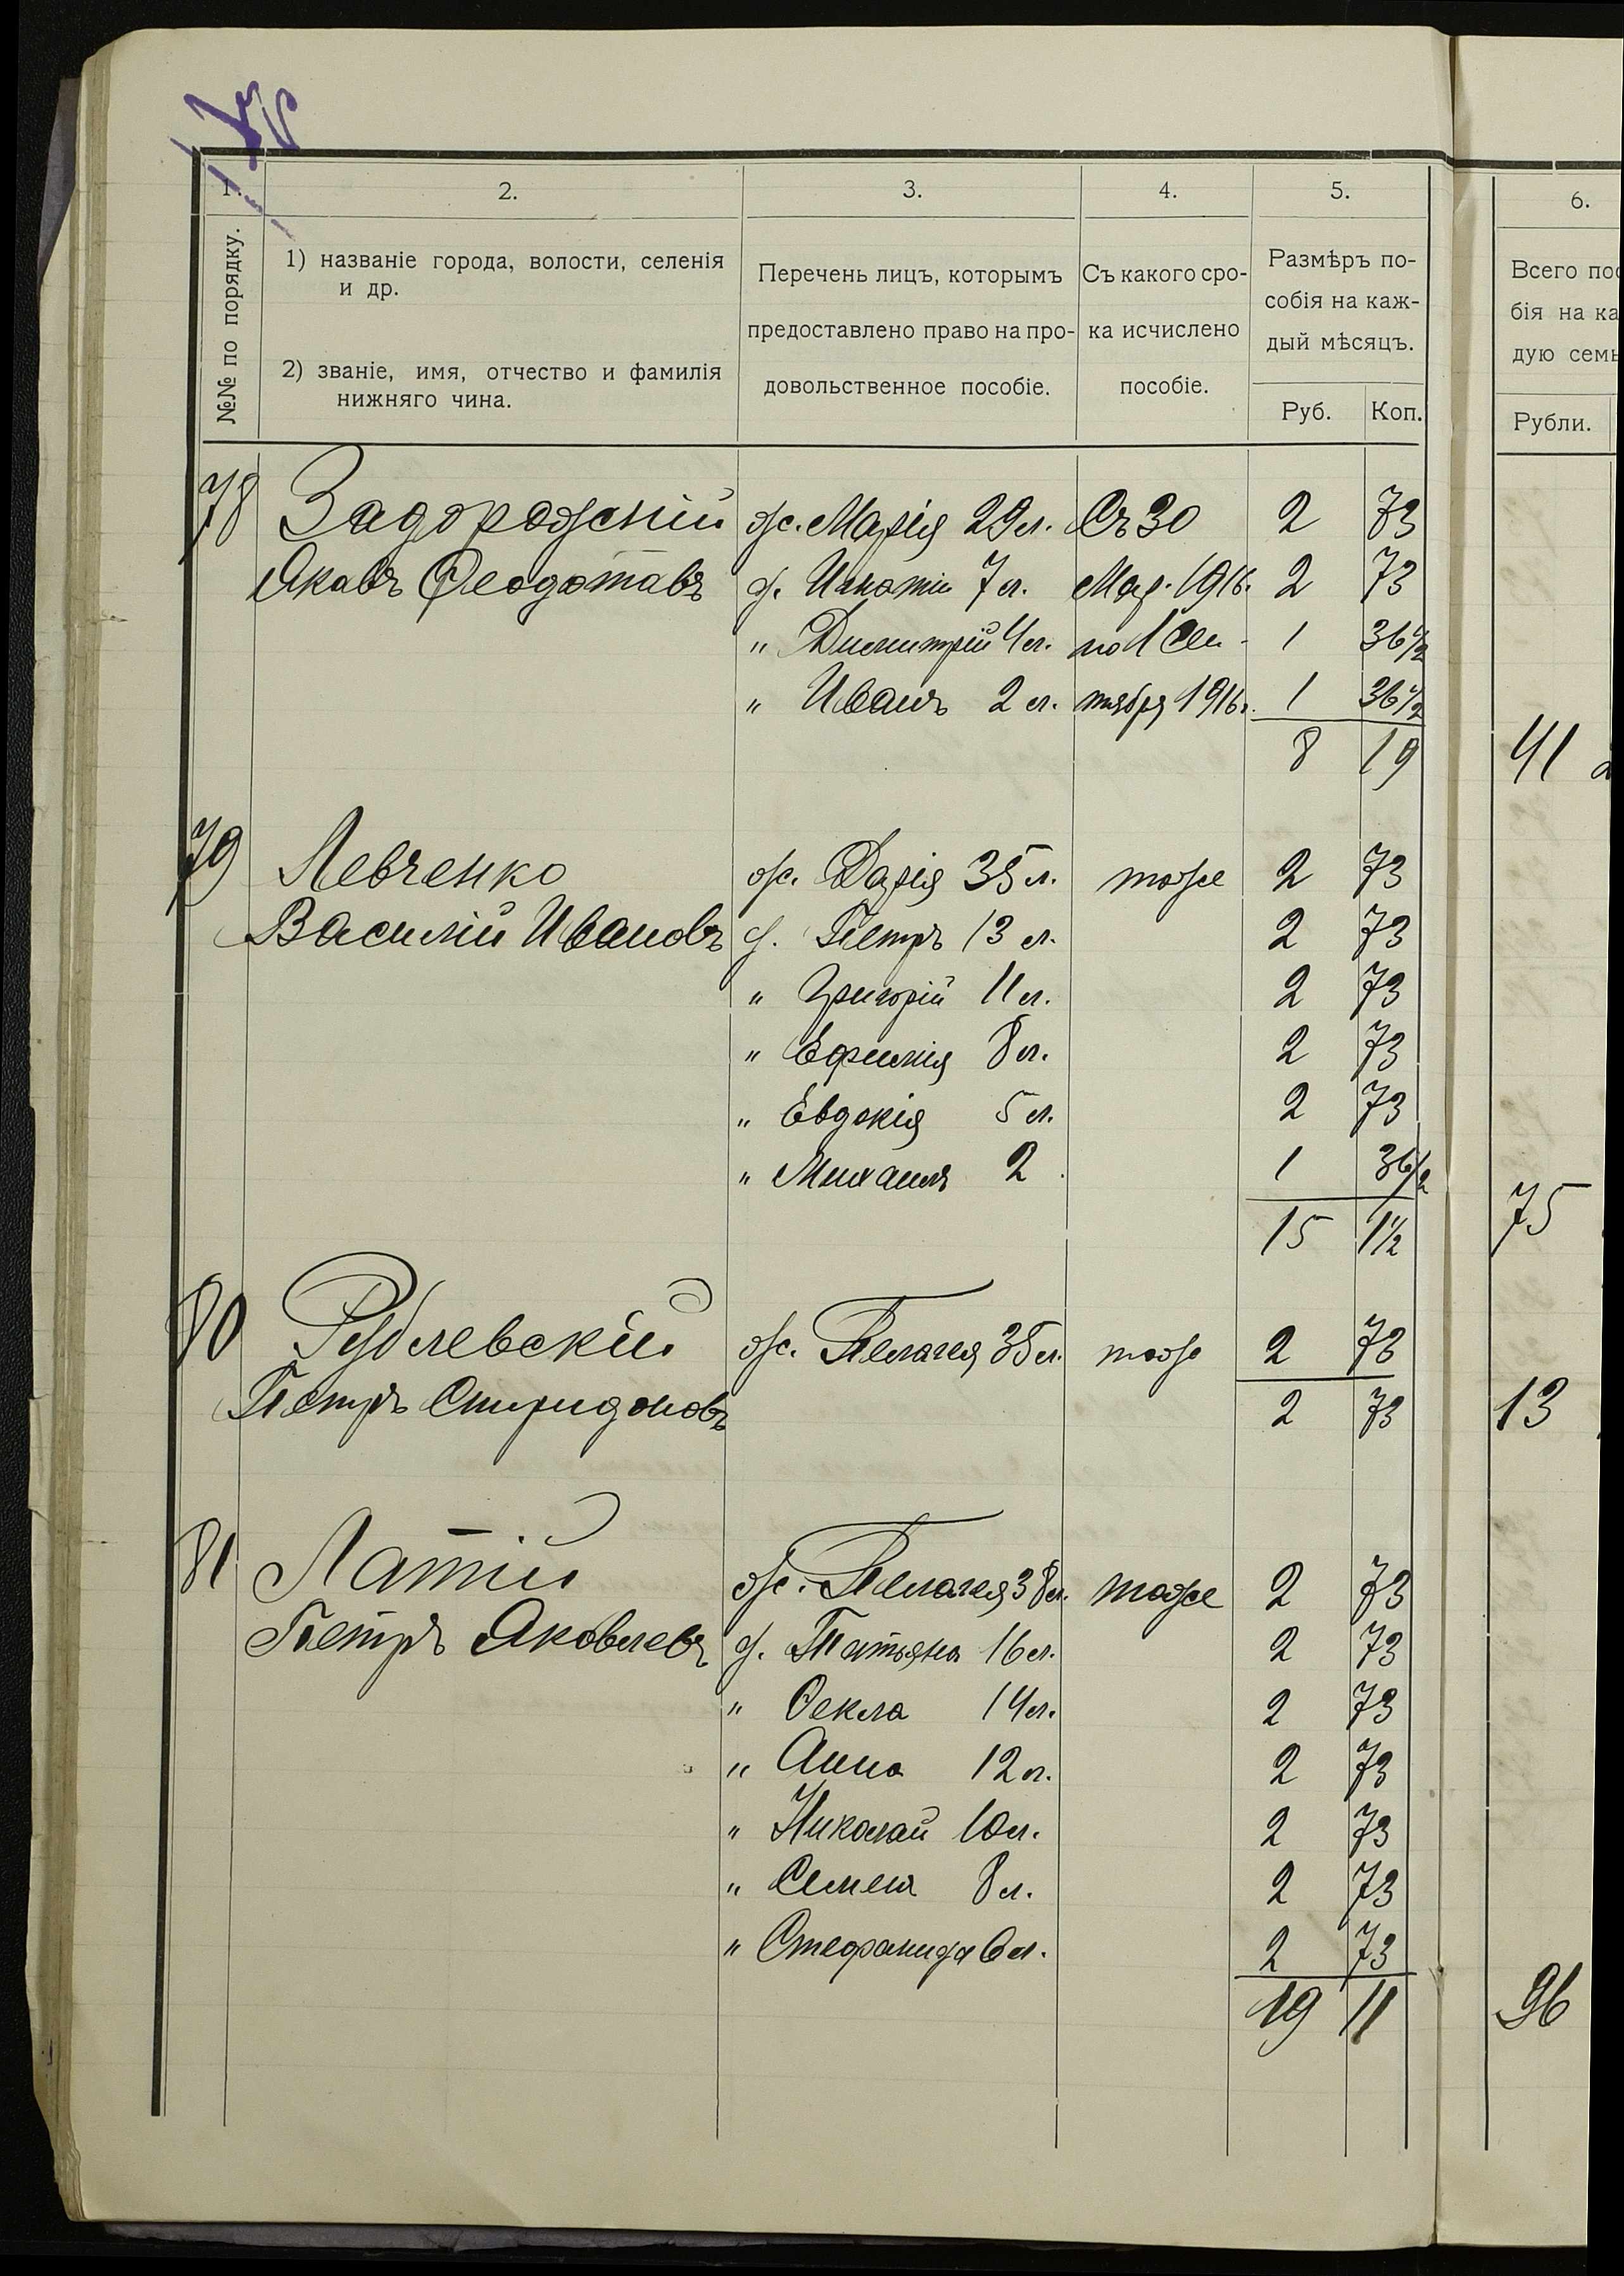 1. 2. 3. 4. 5. 6.
№№ по порядку.
1) названіе города, волости, селенія
и др.
2) званіе, имя, отчество и фамилія
нижняго чина.
Перечень лицъ, которымъ
предоставлено право на про-
довольственное пособіе.
Съ какого сро-
ка исчислено
пособіе.
Размѣръ по-
собія на каж-
дый мѣсяцъ.
Руб. Коп.
Всего пос
бія на ка
дую семь
Рубли.
78 Задорожній ж. Марія 29 л. Съ 30 2 73
Яковъ Феодотовъ д. Игнатій 7 л. Мар. 1916. 2 73
" Димитрій 4 л. по 1 Сен- 1 36 1/2
" Иванъ 2 л. тября 1916 г. 1 36 1/2
8 19 41
79 Левченко ж. Дарія 35 л. тоже 2 73
Василій Ивановъ д. Петръ 13 л. 2 73
" Григорій 11 л. 2 73
" Ефимія 8 л. 2 73
" Евдокія 5 л. 2 73
" Михаилъ 2 1 36 1/2
15 1 1/2 75
80 Рублевскій ж. Пелагея 35 л. тоже 2 73
Петръ Спиридоновъ 2 73 13
81 Латій ж. Пелагея 38 л. тоже 2 73
Петръ Яковлевъ д. Татьяна 16 л. 2 73
" Ѳекла 14 л. 2 73
" Анна 12 л. 2 73
" Николай 10 л. 2 73
" Семенъ 8 л. 2 73
" Стефанида 6 л. 2 73
19 11 96